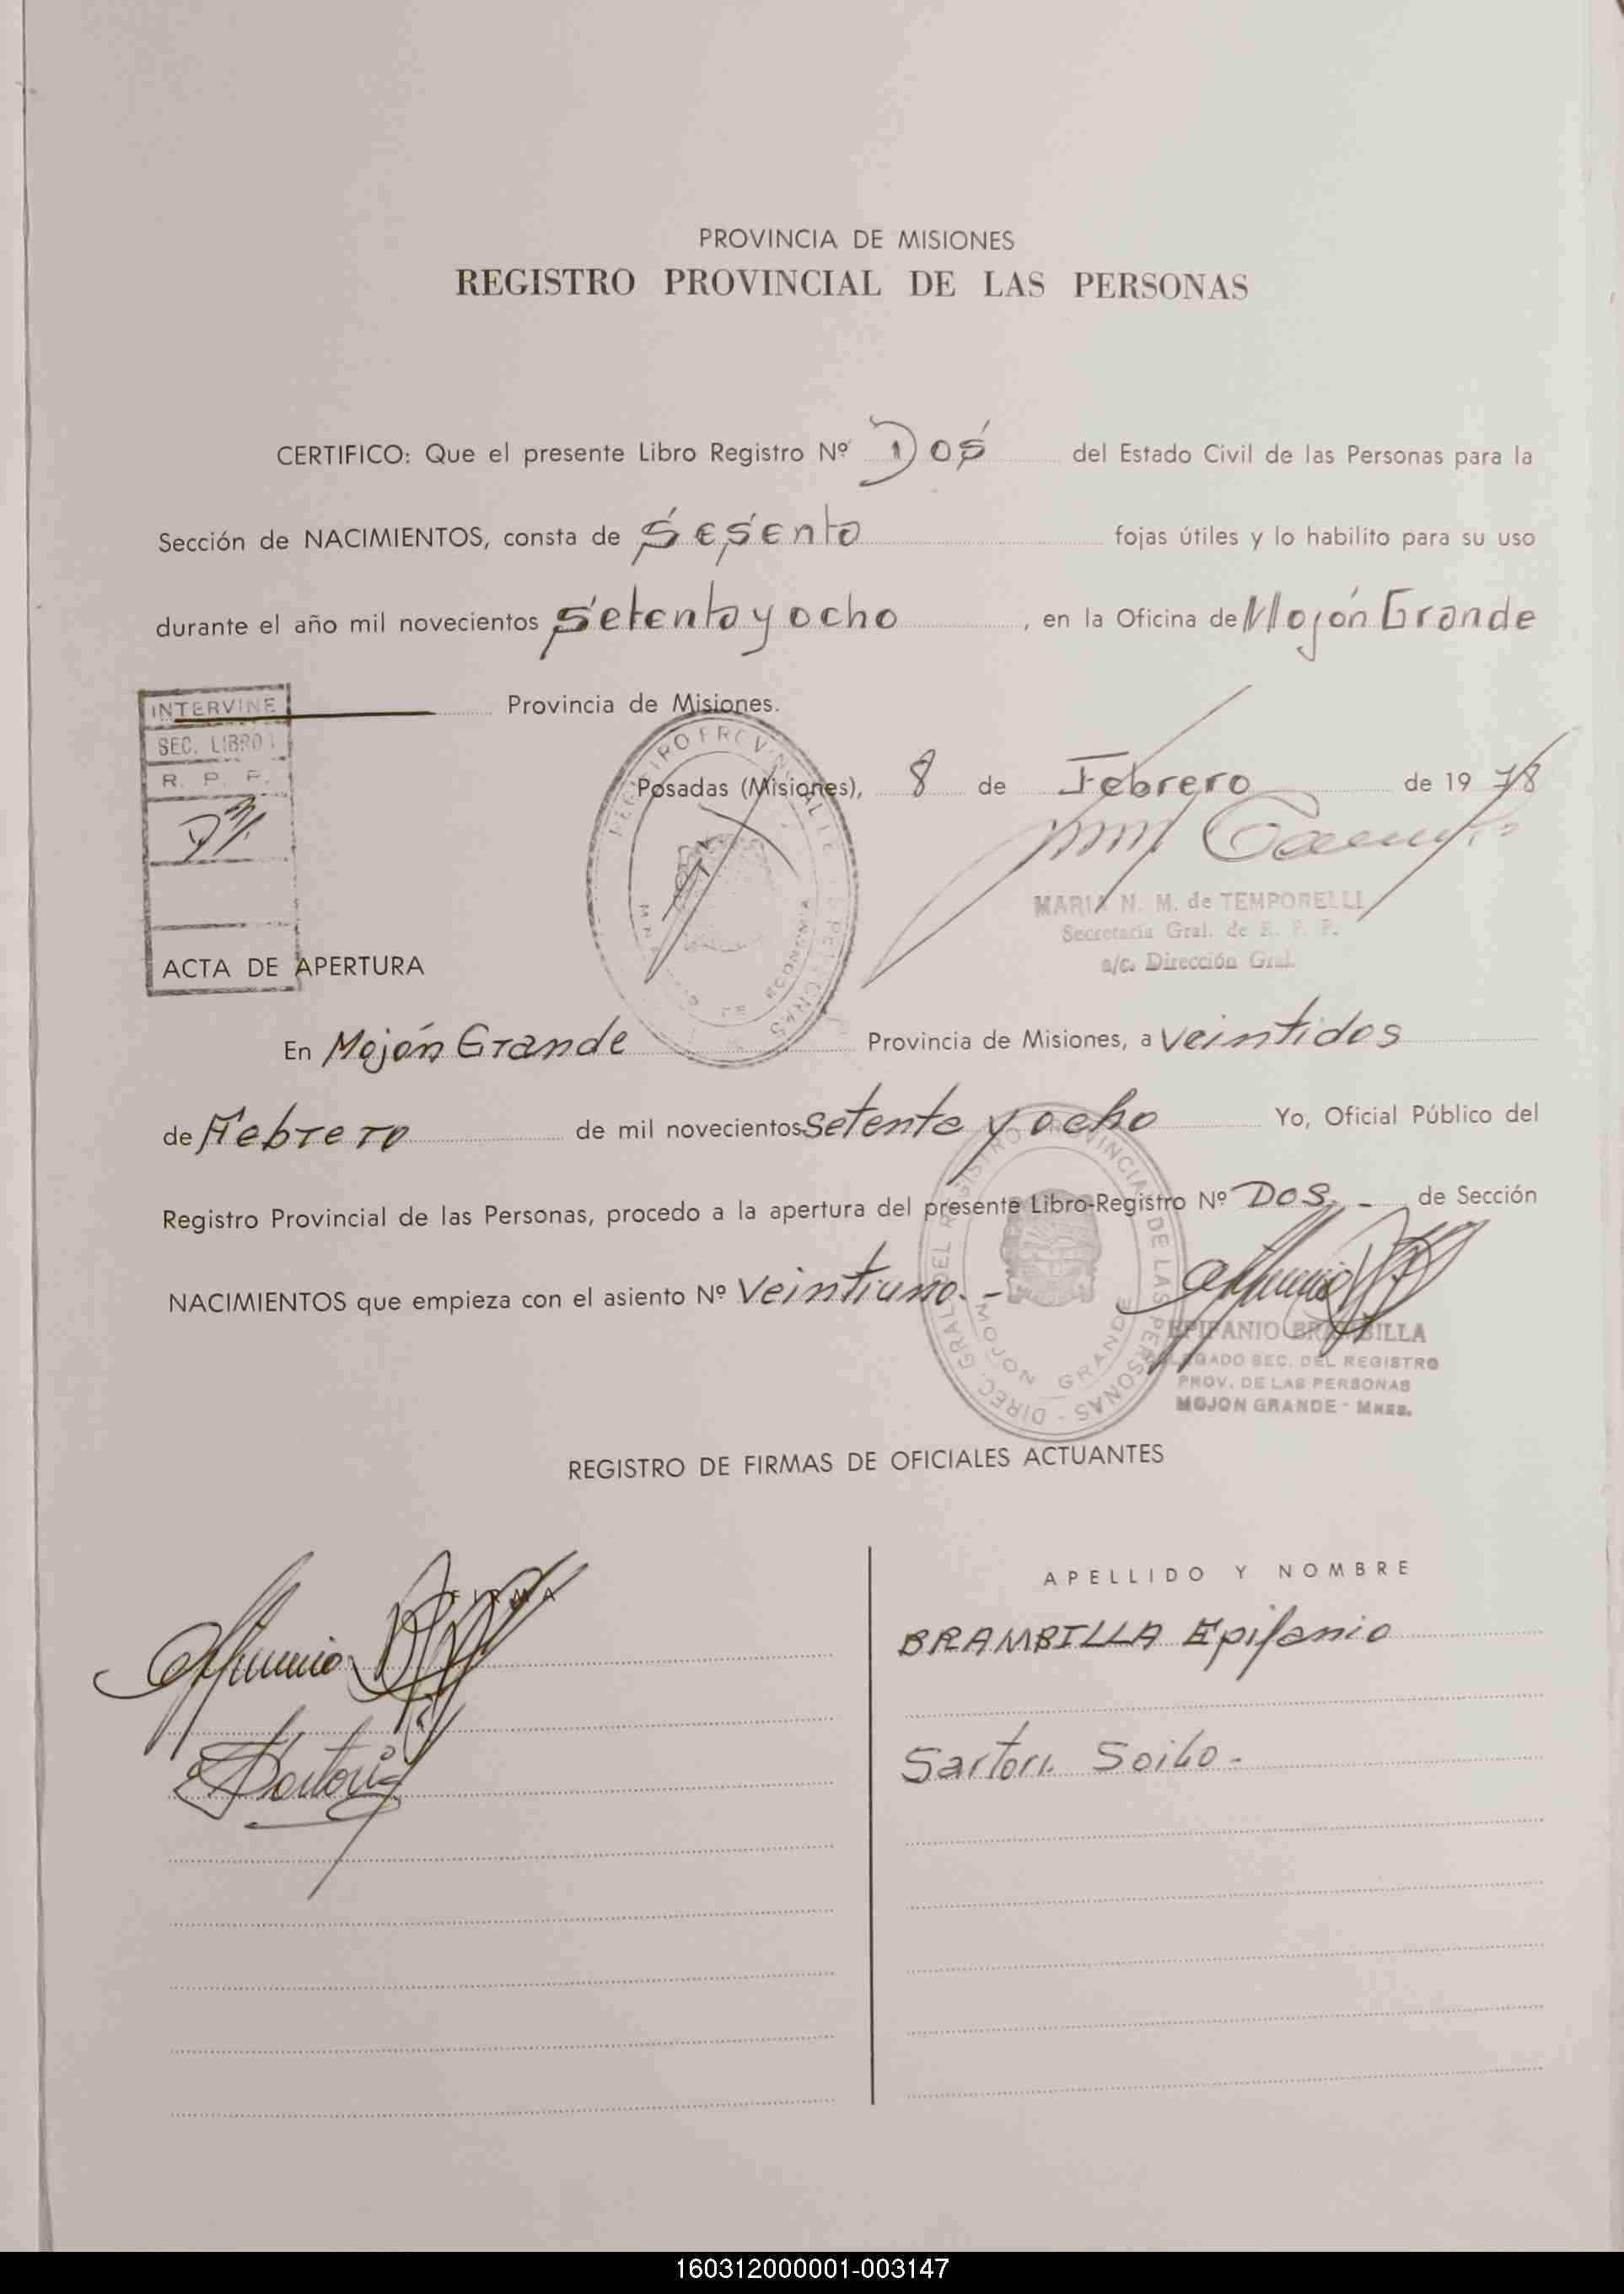 PROVINCIA DE MISIONES
REGISTRO PROVINCIAL DE LAS PERSONAS
CERTIFICO: Que el presente Libro Registro Nº Dos del Estado Civil de las Personas para la
Sección de NACIMIENTOS, consta de Sesenta fojas útiles y lo habilito para su uso
durante el año mil novecientos setenta y ocho, en la Oficina de Mojón Grande
INTERVINE
Provincia de Misiones.
SEC. LIBRO
R. P. P.
Posadas (Misiones), 8 de Febrero de 1978
REGISTRO PROVINCIAL DE LAS PERSONAS
DE ECONOMIA
MARIA N. M. de TEMPORELLI
Secretaria Gral. de R. P. P.
a/c. Dirección Gral.
ACTA DE APERTURA
En Mojón Grande Provincia de Misiones, a veintidos
de Febrero de mil novecientos setenta y ocho Yo, Oficial Público del
Registro Provincial de las Personas, procedo a la apertura del presente Libro-Registro Nº Dos. - de Sección
NACIMIENTOS que empieza con el asiento Nº Veintiuno. -
DIREC. GRAL. DEL REGISTRO PROVINCIAL DE LAS PERSONAS -
MOJON GRANDE
EPIFANIO BRAMBILLA
DELEGADO SEC. DEL REGISTRO
PROV. DE LAS PERSONAS
MOJON GRANDE - MNES.
REGISTRO DE FIRMAS DE OFICIALES ACTUANTES
FIRMA
APELLIDO Y NOMBRE
BRAMBILLA Epifanio
Sartori Soilo -
160312000001-003147